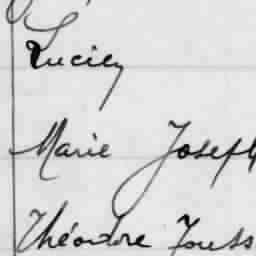 Lucien
Marie Joseph
Théodore Touss